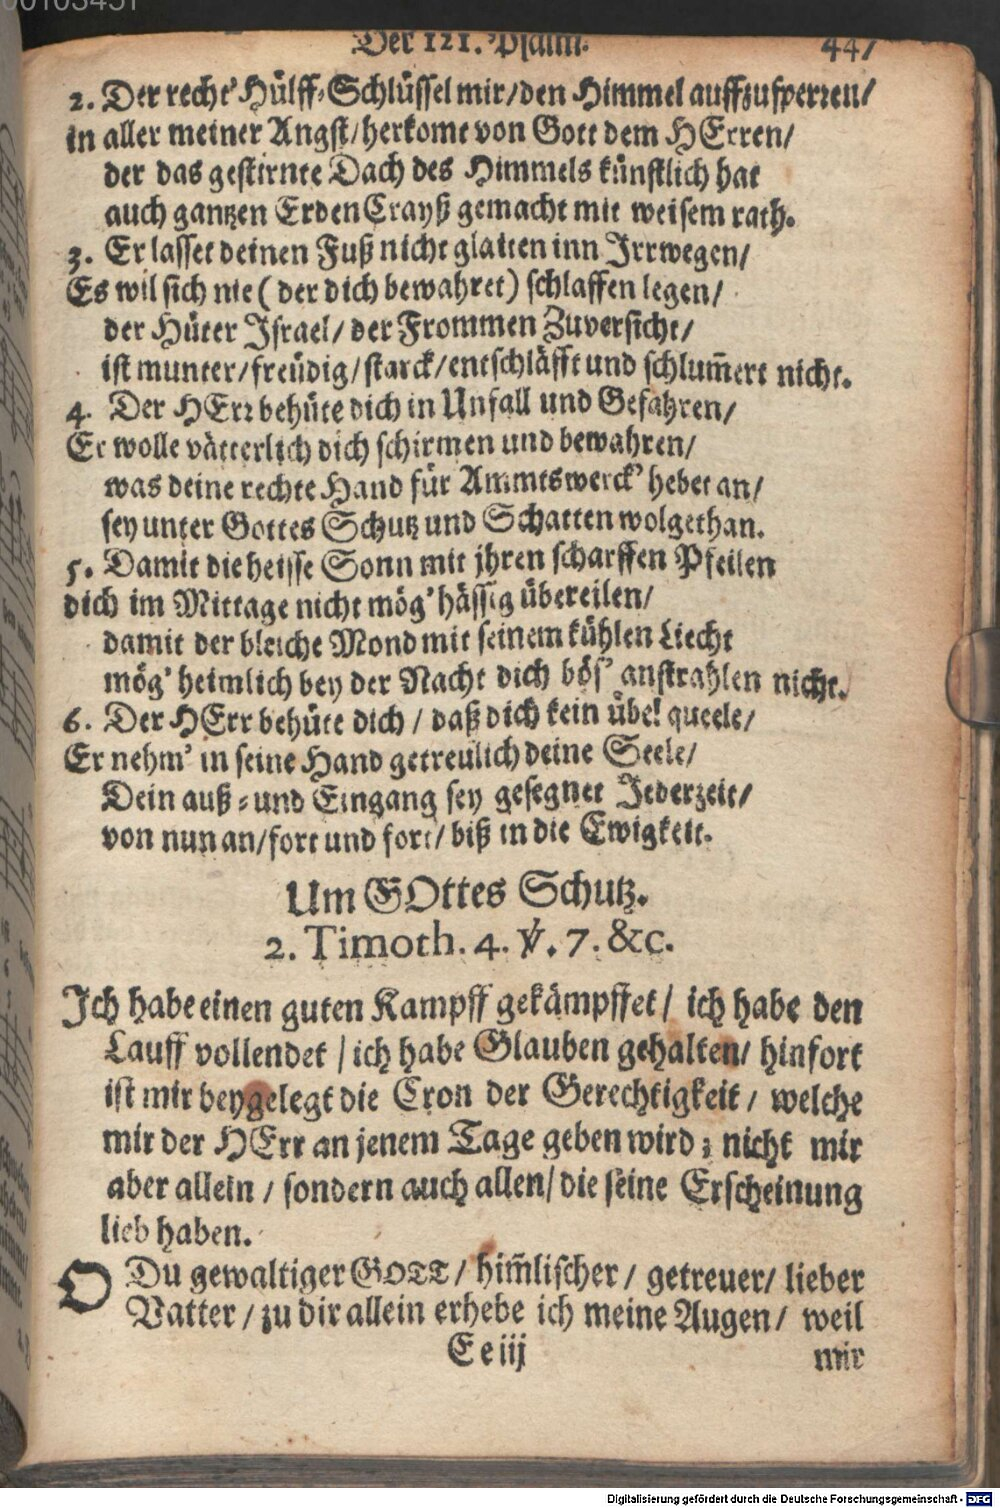 00103451
Der 121. Psalm. 447
2. Der recht' Hülff-Schlüssel mir/den Himmel auffzusperren/
in aller meiner Angst/herkomt von Gott dem HErren/
der das gestirnte Dach des Himmels künstlich hat
auch gantzen Erden Crayß gemacht mit weisem rath.
3. Er lasset deinen Fuß nicht glaiten inn Irrwegen/
Es wil sich nie (der dich bewahret) schlaffen legen/
der Hüter Israel/ der Frommen Zuversicht/
ist munter/freüdig/starck/entschläfft und schlum̃ert nicht.
4. Der HErr behüte dich in Unfall und Gefahren/
Er wolle vätterlich dich schirmen und bewahren/
was deine rechte Hand für Ammtswerck' hebet an/
sey unter Gottes Schutz und Schatten wolgethan.
5. Damit die heisse Sonn mit jhren scharffen Pfeilen
dich im Mittage nicht mög' hässig übereilen/
damit der bleiche Mond mit seinem kühlen Liecht
mög' heimlich bey der Nacht dich bös' anstrahlen nicht.
6. Der HErr behüte dich / daß dich kein übel queele/
Er nehm' in seine Hand getreulich deine Seele/
Dein auß-und Eingang sey gesegnet Jederzeit/
von nun an/fort und fort/ biß in die Ewigkeit.
Um GOttes Schutz.
2. Timoth. 4. ℣. 7. &c.
Ich habe einen guten Kampff gekämpffet/ ich habe den
Lauff vollendet / ich habe Glauben gehalten/ hinfort
ist mir beygelegt die Cron der Gerechtigkeit / welche
mir der HErr an jenem Tage geben wird; nicht mir
aber allein / sondern auch allen/ die seine Erscheinung
lieb haben.
O Du gewaltiger GOTT / him̃lischer / getreuer/ lieber
Vatter / zu dir allein erhebe ich meine Augen/ weil
Ee iij mir
Digitalisierung gefördert durch die Deutsche Forschungsgemeinschaft - DFG